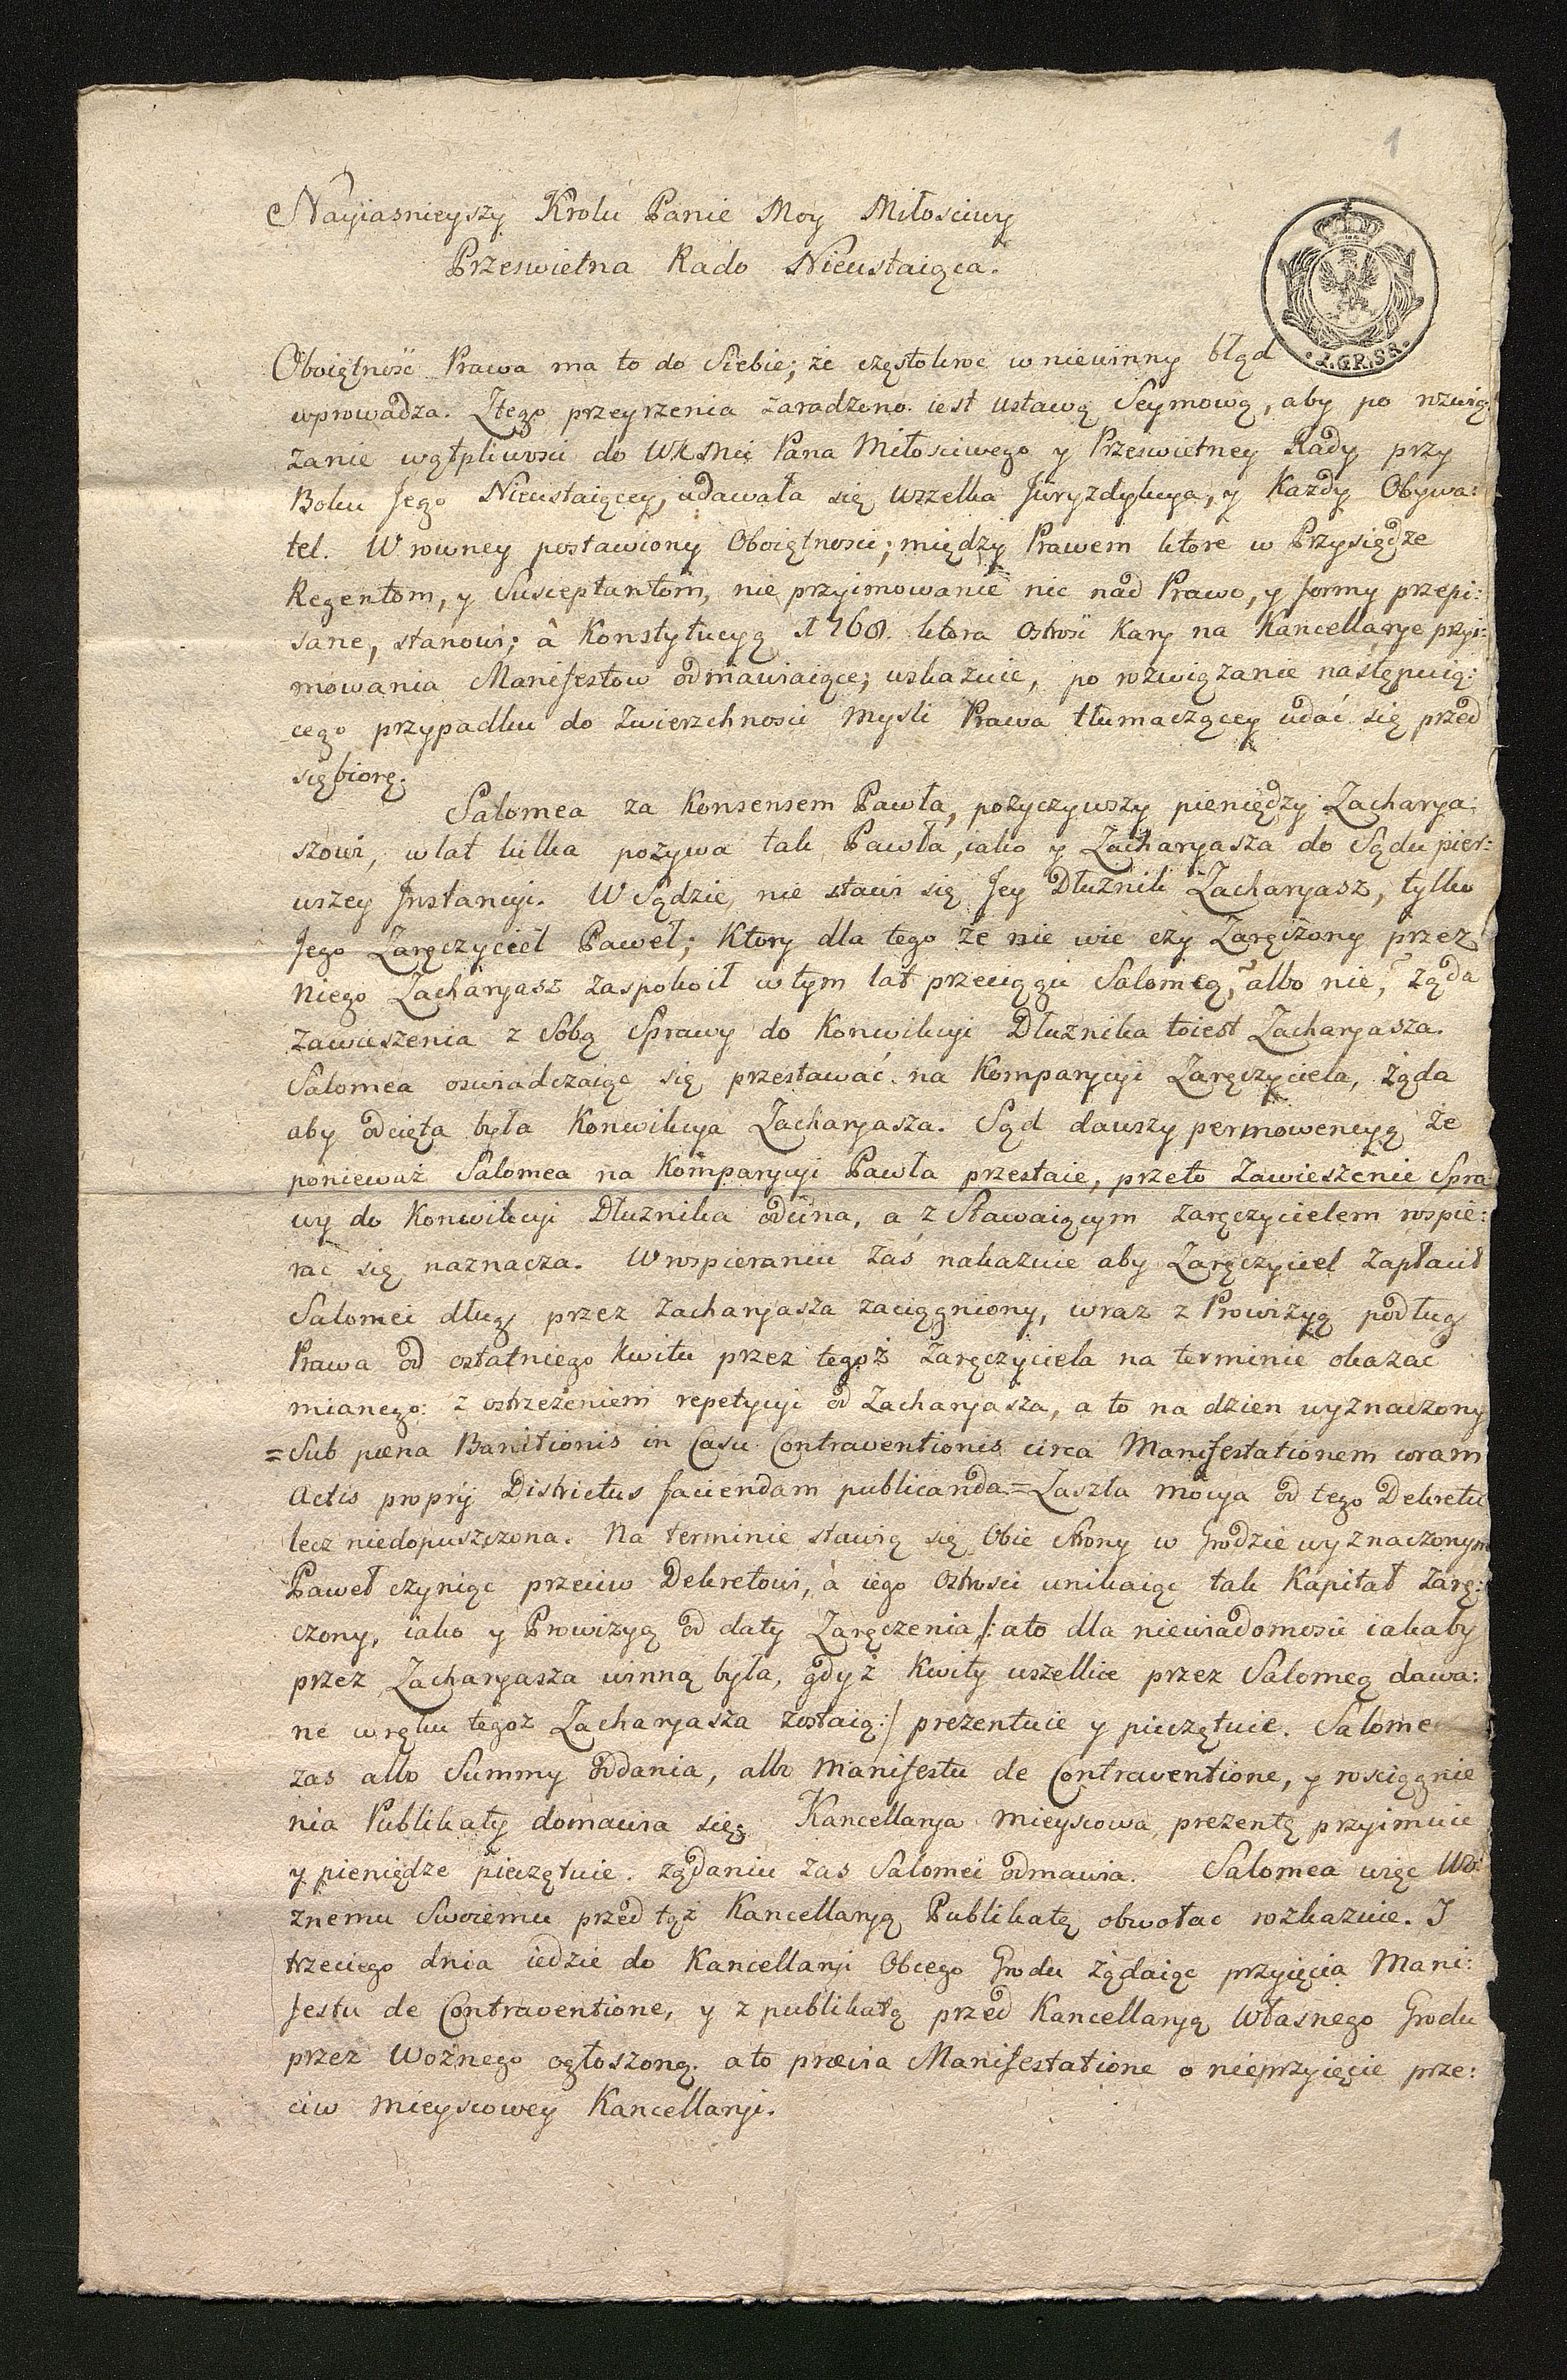 1
Nayiasnieyszy Krolu Panie Moy Miłosciwy
Przeswietna Rado Nieustaiąca.
1.GR.SR.
Oboiętność Prawa ma to do Siebie; że częstokroc w niewinny błąd
wprowadza. Ztego przeyrzenia zaradzono iest Ustawą Seymową, aby po rozwią:
zanie wątpliwosci do WKMci Pana Miłosciwego y Przeswietney Rady przy
Boku Jego Nieustaiącey, udawała się wszelka Juryzdykcya, y Każdy Obywa:
tel. W rowney postawiony Oboiętnosci; między Prawem ktore w Przysiędze
Regentom, y Susceptantom, nie przyimowanie nic nad Prawo, y formy przepi:
sane, stanowi; à Konstytucyą 1768. ktora Ostrość Kary na Kancellarye przyi:
mowania Manifestow odmawiaiące; wskazuie, po rozwiązanie następuią:
cego przypadku do Zwierzchnosci Mysli Prawa tłumaczącey udać się przed
się biorę.
Salomea za Konsensem Pawła, pożyczywszy pieniędzy Zacharya:
szowi, w lat kilka pozywa tak Pawła, iako y Zacharyasza do Sądu pier:
wszey Jnstancyi. W Sądzie, nie stawi się Jey Dłużnik Zacharyasz, tylko
Jego Zaręczyciel Paweł; Ktory dla tego że nie wie czy Zaręczony przez
Niego Zacharyasz zaspokoił w tym lat przeciągu Salomeą, albo nie, żąda
zawieszenia z Sobą Sprawy do Konwikcyi Dłużnika toiest Zacharyasza.
Salomea oswiadczaiąc się przestawać na Komparycyi Zaręczyciela, żąda
aby odcięta była Konwikcya Zacharyasza. Sąd dawszy permowencyą że
ponieważ Salomea na Komparycyi Pawła przestaie, przeto Zawieszenie Spra:
wy do Konwikcyi Dłużnika odcina, a z Stawaiącym zaręczycielem rospie:
rac się naznacza. W rospieraniu zas nakazuie aby Zaręczyciel zapłacił
Salomei dług przez Zacharyasza zaciągniony, wraz z Prowizyą podług
Prawa od ostatniego kwitu przez tegoż Zaręczyciela na terminie okazac
mianego: z ostrzeżeniem repetycyi od Zacharyasza, a to na dzien wyznaczony
=Sub pœna Banitionis in Casu Contraventionis circa Manifestationem coram
Actis proprij Districtus faciendam publicanda= Zaszła mocya od tego Dekretu
lecz niedopuszczona. Na terminie stawią się Obie Strony w Grodzie wyznaczonym
Paweł czyniąc przeciw Dekretowi, à iego Ostrosci unikaiąc tak Kapitał zarę:
czony, iako y Prowizyą od daty Zaręczenia /: ato dla niewiadomosci iakaby
przez Zacharyasza winną była, gdyż Kwity wszelkie przez Salomeą dawa:
ne w ręku tegoz Zacharyasza zostaią :/ prezentuie y pieczętuie. Salomea
zas albo Summy oddania, albo Manifestu de Contraventione, y rosciągnie
nia Publikaty domawia się; Kancellarya mieyscowa prezentę przyimuie
y pieniędze pieczętuie. żądaniu zas Salomei odmawia. Salomea więc Wo:
znemu Swoiemu przed tąż Kancellaryą Publikatę obwołac rozkazuie. I
trzeciego dnia iedzie do Kancellaryi Obcego Grodu żądaiąc przyięcia Mani:
festu de Contraventione, y z publikatą przed Kancellaryą własnego Grodu
przez Woznego ogłoszoną. ato prævia Manifestatione o nieprzyięcie prze:
ciw mieyscowey Kancellaryi.